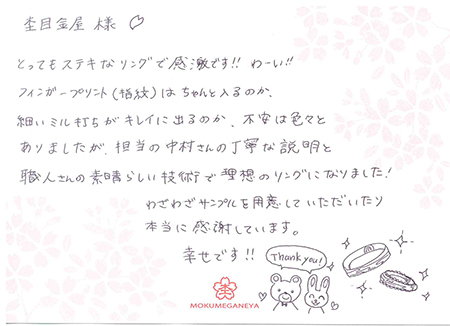 杢目金屋 様 ♡
とってもステキなリングで感激です!! わーい!!
フィンガープリント(指紋)はちゃんと入るのか、
細いミル打ちがキレイに出るのか、不安は色々と
ありましたが、担当の中村さんの丁寧な説明と
職人さんの素晴らしい技術で理想のリングになりました!
わざわざサンプルを用意していただいたり
本当に感謝しています。
幸せです!!
Thank you!
MOKUMEGANEYA